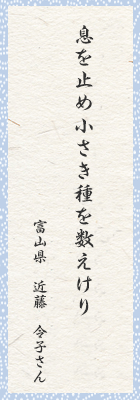 息を止め小さき種を数えけり
富山県　近藤　令子さん